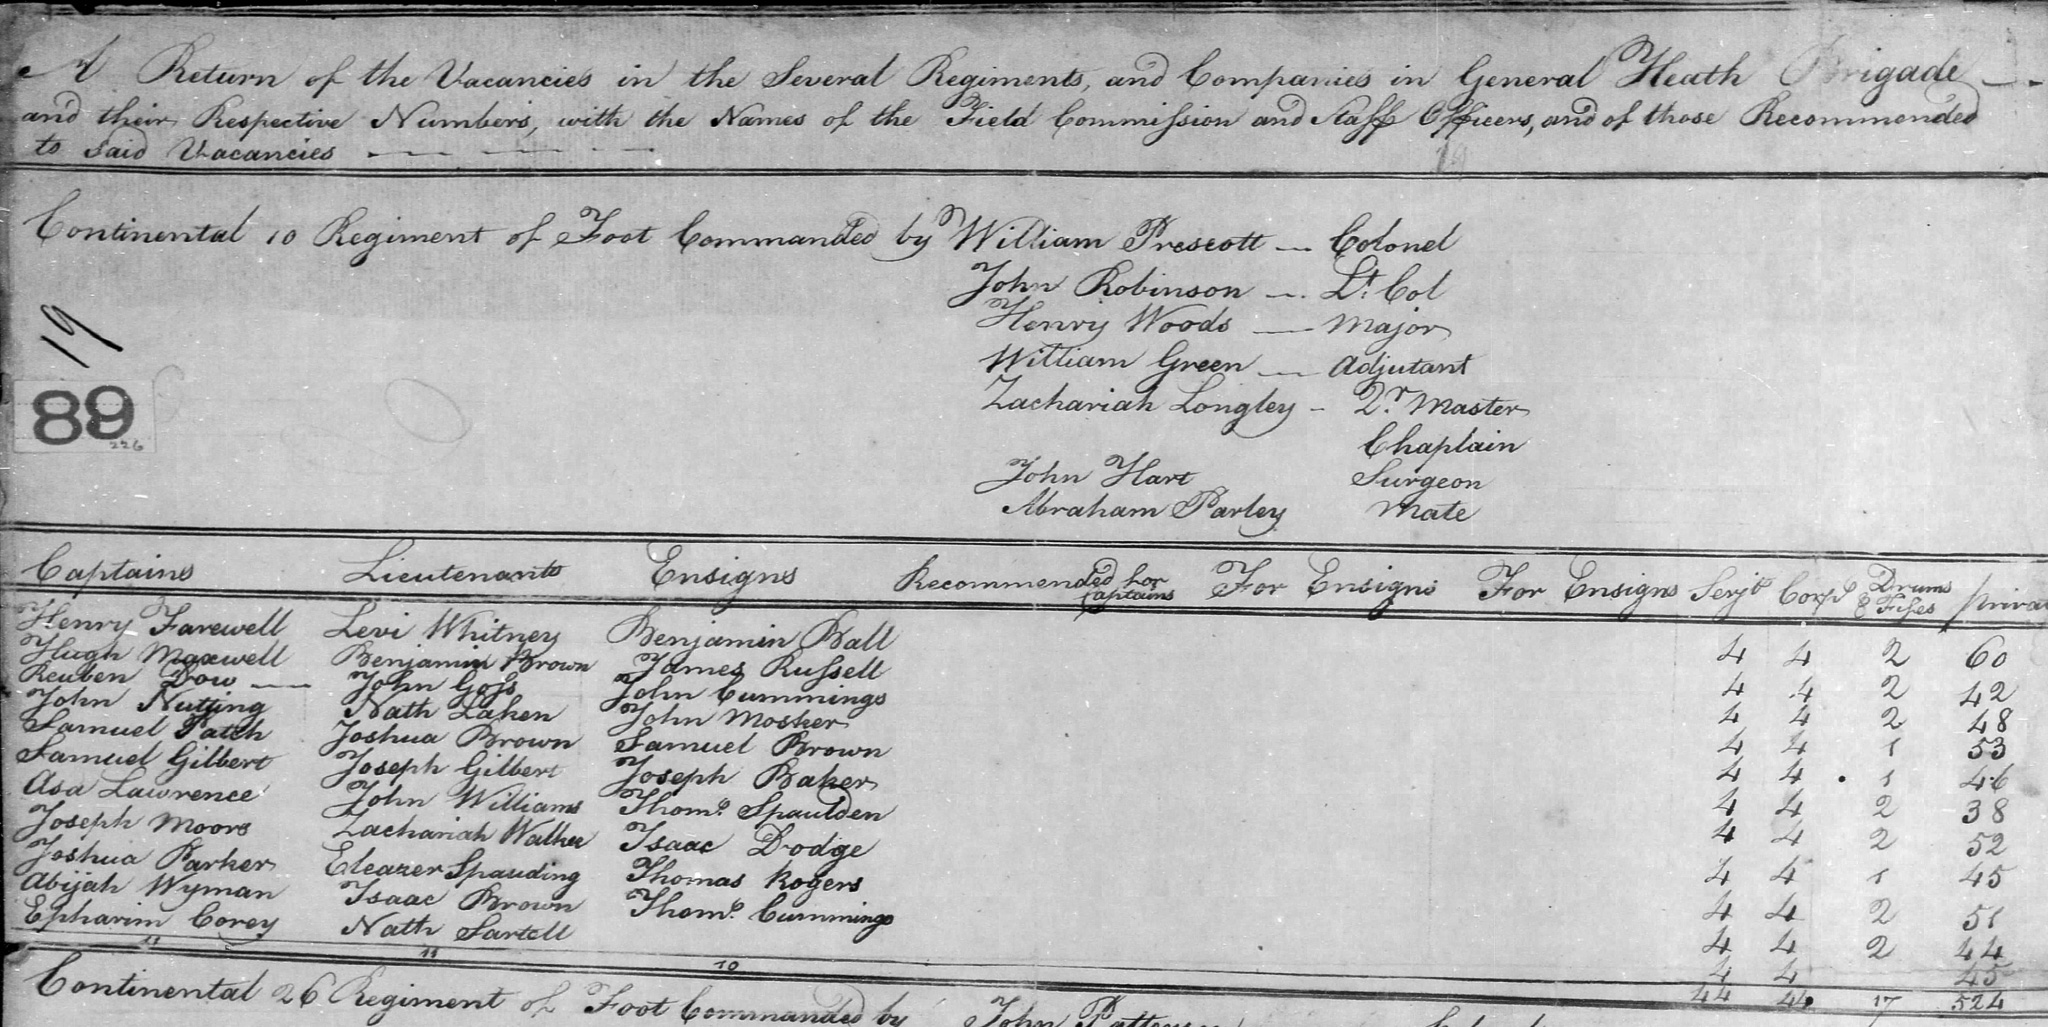 A Return of the Vacancies in the Several Regiments, and Companies in General Heath Brigade
and their Respective Numbers, with the Names of the Field Commission and Staff Officers, and of those Recommended
to said Vacancies
Continental 10 Regiment of Foot Commanded by William Prescott — Colonel
John Robinson — Lt. Col
Henry Woods — Major
19
William Green — Adjutant
Zachariah Longley - Qr. Master
89
226
Chaplain
John Hart Surgeon
Abraham Parley Mate
Captains Lieutenants Ensigns Recommended for Captains For Ensigns For Ensigns Serjts Corpl Drums & Fifes privat
Henry Farewell Levi Whitney Benjamin Ball 4 4 2 60
Hugh Maxwell Benjamin Brown James Russell 4 4 2 42
Reuben Dow — John Goss John Cummings 4 4 2 48
John Nutting Nath Laken John Mosher 4 4 1 53
Samuel Patch Joshua Brown Samuel Brown 4 4 1 46
Samuel Gilbert Joseph Gilbert Joseph Baker 4 4 2 38
Asa Lawrence John Williams Thoms. Spaulden 4 4 2 52
Joseph Moors Zachariah Walker Isaac Dodge 4 4 1 45
Joshua Parker Eleazer Spauding Thomas Rogers 4 4 2 51
Abijah Wyman Isaac Brown Thoms. Cummings 4 4 2 44
Epharim Corey Nath Sartell 4 4 45
11 11 10 44 44 17 524
Continental 26 Regiment of Foot Commanded by John